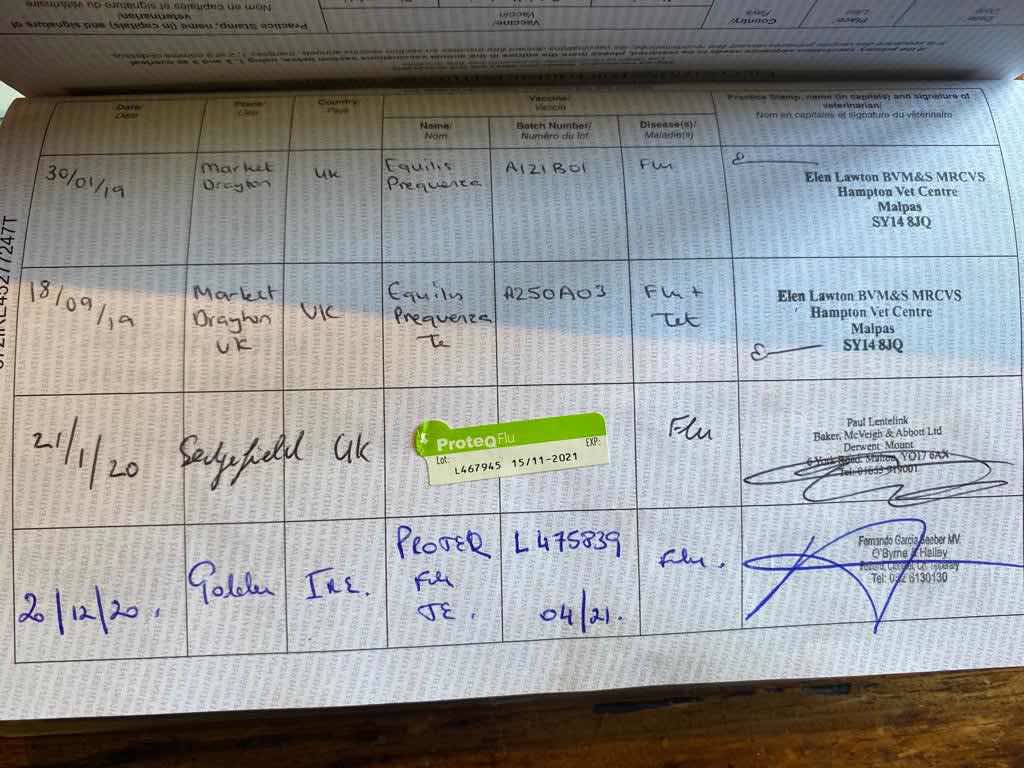 Practice Stamp, name (in capitals) and signature of veterinarian/
Nom en capitales et signature du vétérinaire
Vaccine/
Vaccin
Country/
Pays
Place/
Lieu
Date/
Date
Date/
Date
Place/
Lieu
Country/
Pays
Vaccine/
Vaccin
Practice Stamp, name (in capitals) and signature of
veterinarian/
Nom en capitales et signature du vétérinaire
Name/
Nom
Batch Number/
Numéro du lot
Disease(s)/
Maladie(s)
30/01/19
Market
Drayton
UK
Equilis
Prequenza
A121B01
Flu
Elen Lawton BVM&S MRCVS
Hampton Vet Centre
Malpas
SY14 8JQ
18/09/19
Market
Drayton
UK
UK
Equilis
Prequenza
Te
A250A03
Flu +
Tet
Elen Lawton BVM&S MRCVS
Hampton Vet Centre
Malpas
SY14 8JQ
21/1/20
Sedgefield
UK
ProteqFlu
Lot:
EXP:
L467945 15/11-2021
Flu
Paul Lentelink
Baker, McVeigh & Abbott Ltd
Derwent Mount
6 York Road, Malton, YO17 6AX
Tel: 01653 919001
20/12/20.
Golden
IRE.
PROTER
Flu
TE.
L475839
04/21.
Flu.
Fernando Garcia Seeber MV
O'Byrne & Halley
Tel: 052 6130130